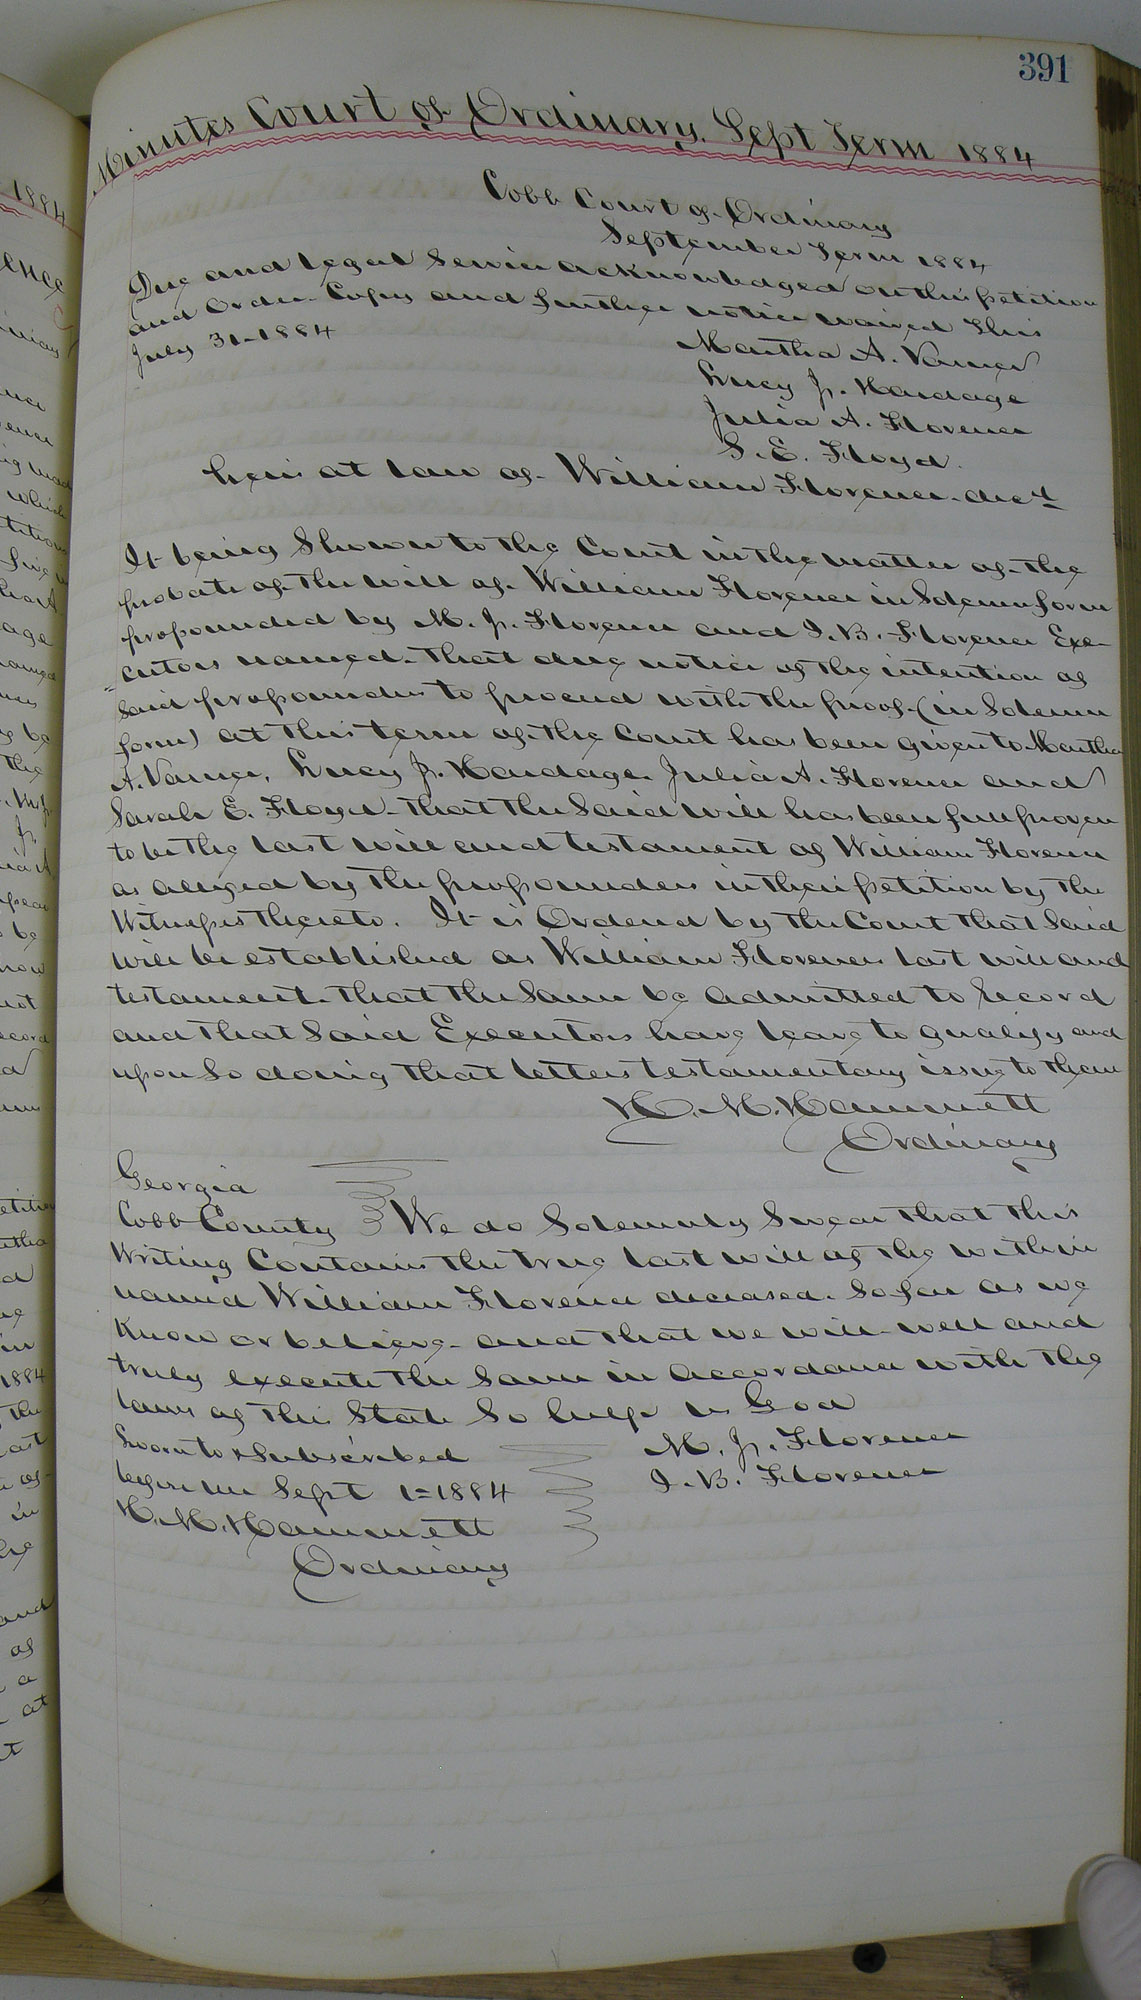 391
Minutes Court of Ordinary. Sept Term 1884
Cobb Court of Ordinary
September Term 1884
Due and legal Service acknowledged on this petition
and order. Copy and further notice waived This
July 31-1884
Martha A. Vance
Lucy J. Hardage
Julia A. Florence
S. E. Floyd.
heirs at law of William Florence decd
It being Shown to the Court in the matter of the
probate of the will of William Florence in Solemn form
propounded by M. J. Florence and I. B. Florence Exe-
cutors named. that due notice of the intention of
Said propounders to proceed with the proof (in Solemn
form) at this term of the Court has been given to Martha
A. Vance, Lucy J. Hardage. Julia A. Florence and
Sarah E. Floyd. that the Said will has been full proven
to be the last will and testament of William Florence
as alleged by the propounders in their petition by the
Witnesses thereto. It is Ordered by the Court that Said
will be established as William Florences last will and
testament. that the Same be admitted to record
and that Said Executors have leave to qualify and
upon So doing that letters testamentary issue to them
H. M. Hammett
Ordinary
Georgia
Cobb County We do Solemnly Swear that this
Writing Contains the true last will of the within
named William Florence deceased. So far as we
Know or believe. and that we will well and
truly execute the Same in accordance with the
laws of this State So help us God
Sworn to & Subscribed
M. J. Florence
before me Sept 1-1884
I. B. Florence
H. M. Hammett
Ordinary